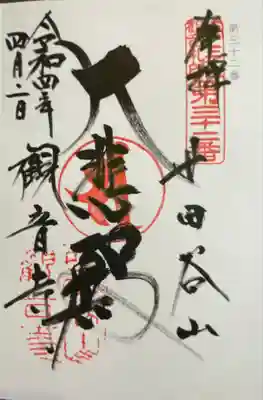 第三十二番
奉拝
第三十二番
谷山
大悲殿
観音寺
令和四年
四月二日